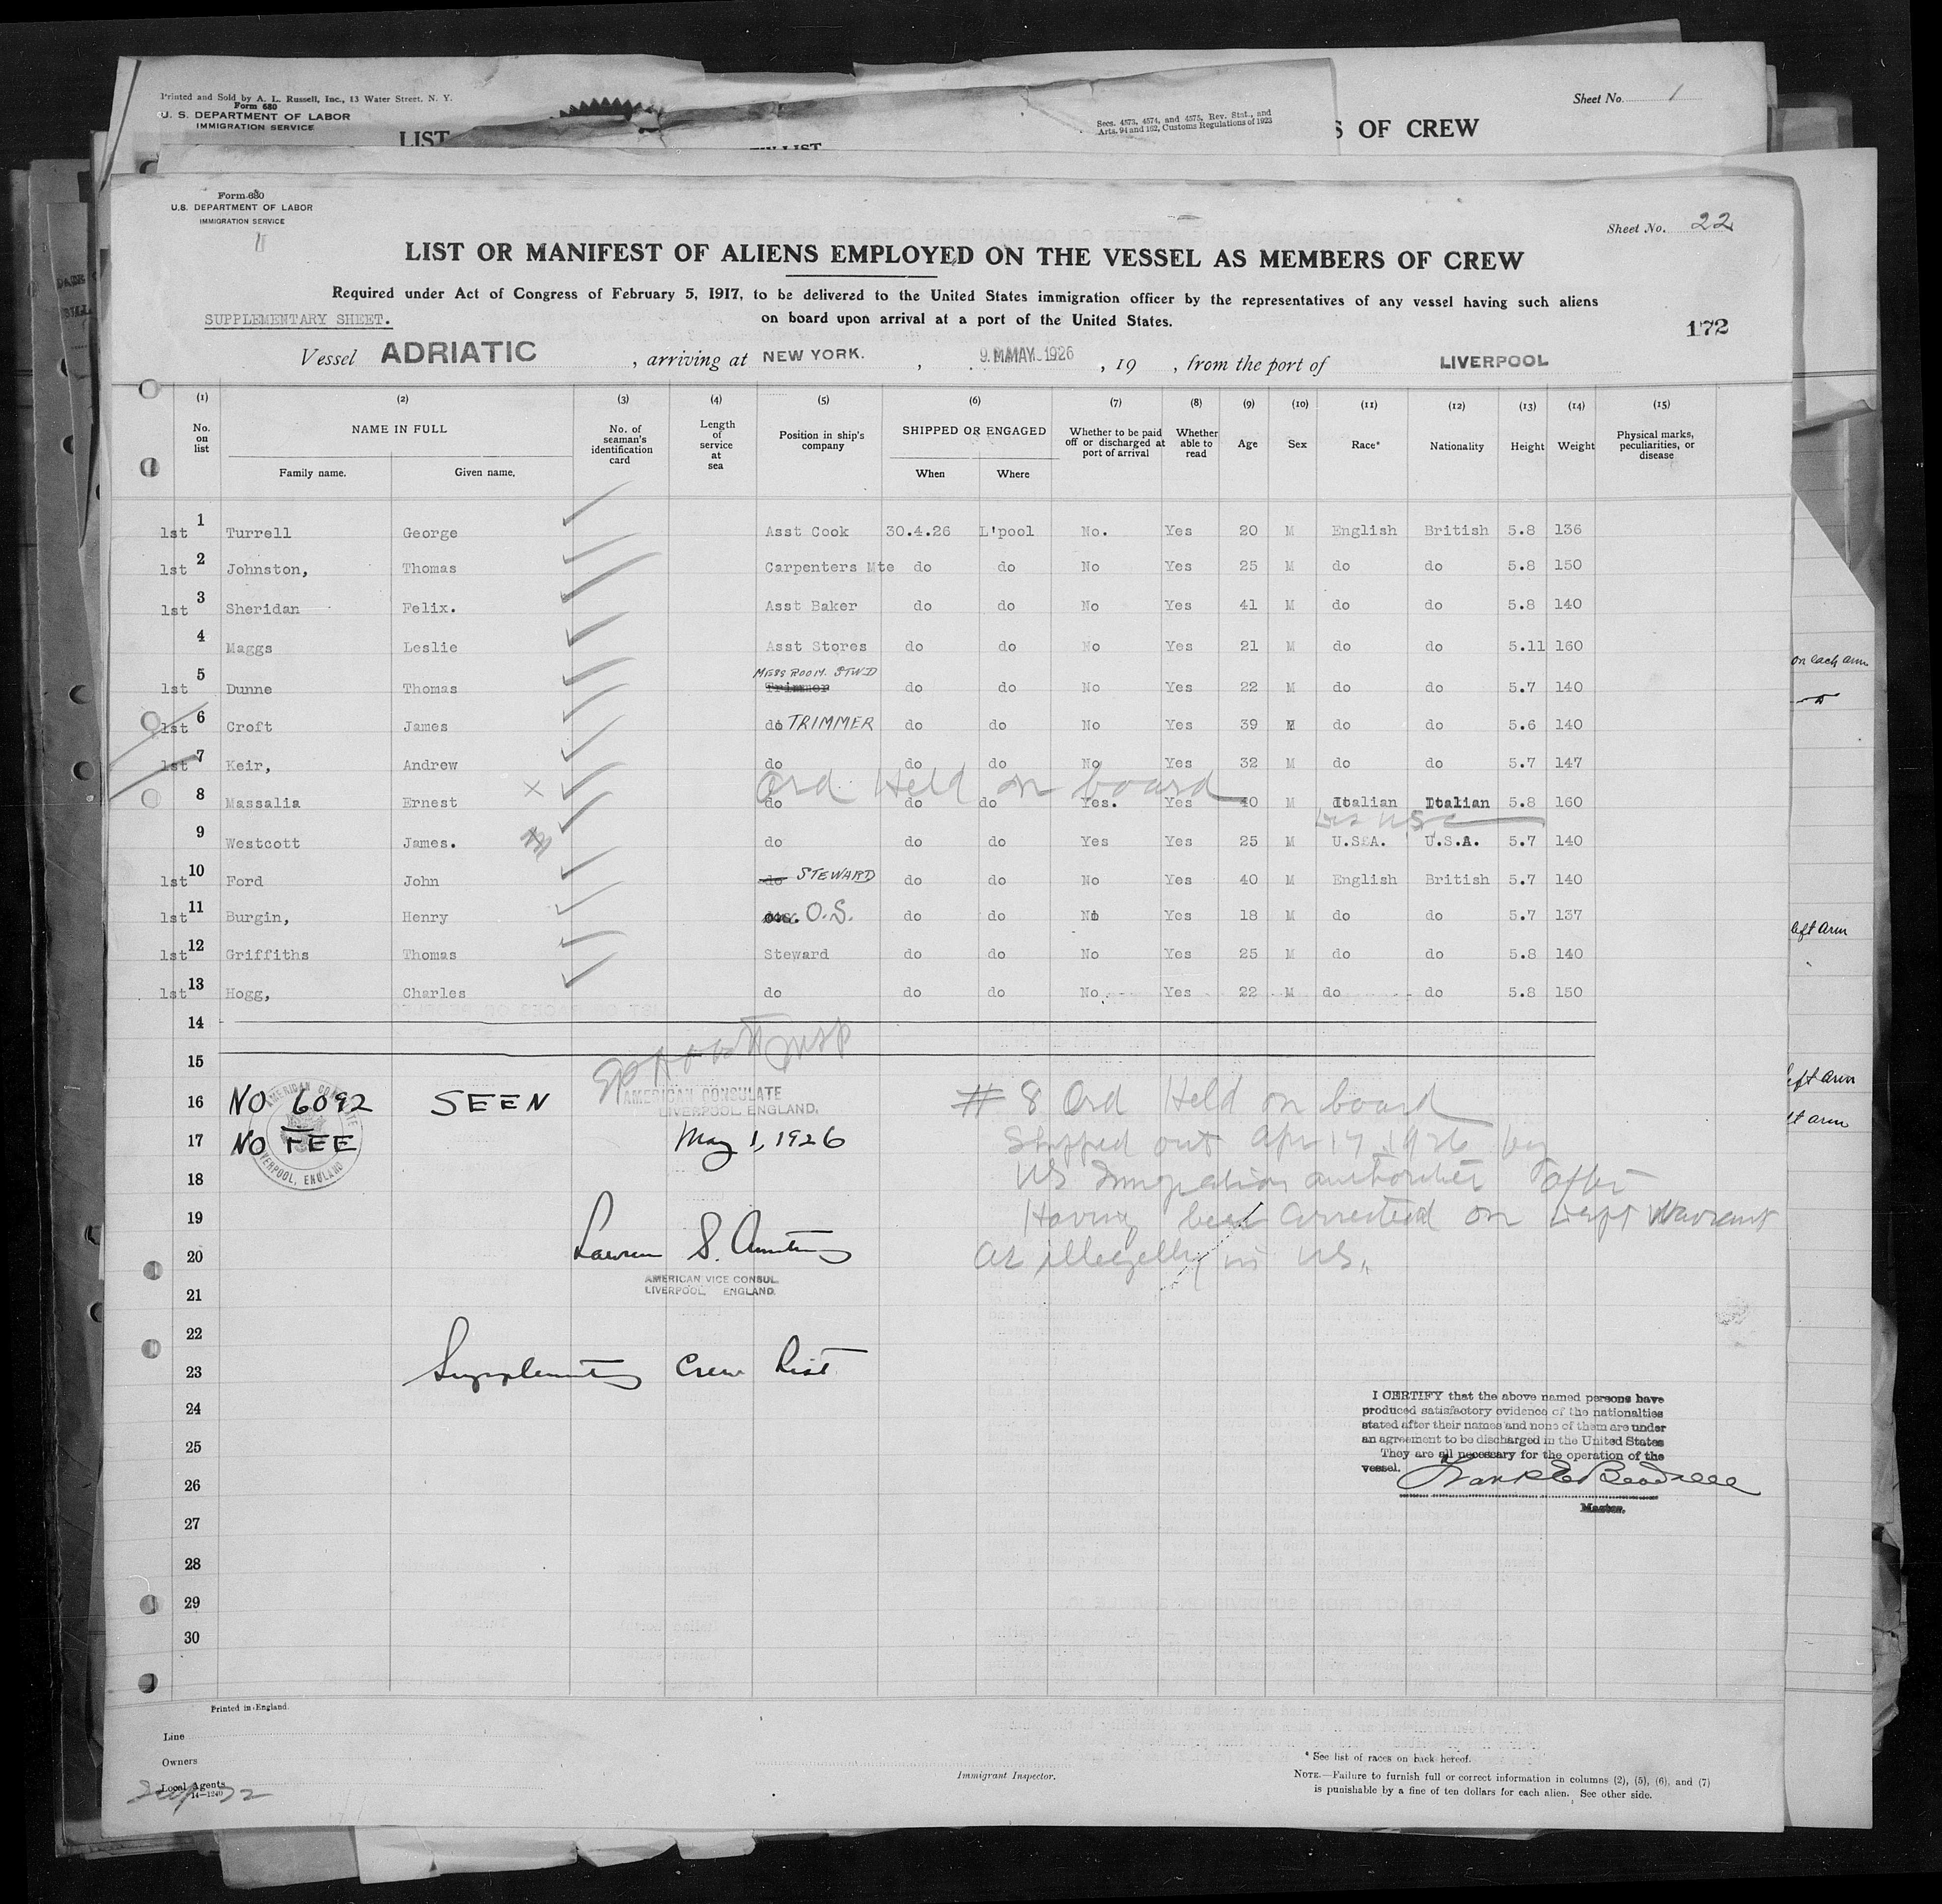 Printed and Sold by A. L. Russell, Inc., 13 Water Street, N. Y.
Form 680
U. S. DEPARTMENT OF LABOR
IMMIGRATION SERVICE
LIST
Secs. 4573, 4574, and 4575, Rev. Stat., and
Arts. 94 and 162, Customs Regulations of 1923
Sheet No. 1
S OF CREW
Form 680
U.S. DEPARTMENT OF LABOR
IMMIGRATION SERVICE
Sheet No. 22
LIST OR MANIFEST OF ALIENS EMPLOYED ON THE VESSEL AS MEMBERS OF CREW
Required under Act of Congress of February 5, 1917, to be delivered to the United States immigration officer by the representatives of any vessel having such aliens
on board upon arrival at a port of the United States.
SUPPLEMENTARY SHEET.
172
Vessel ADRIATIC, arriving at NEW YORK., 9 MAY 1926, 19 , from the port of LIVERPOOL
(1) (2) (3) (4) (5) (6) (7) (8) (9) (10) (11) (12) (13) (14) (15)
No. on list NAME IN FULL Family name. Given name. No. of seaman's identification card Length of service at sea Position in ship's company SHIPPED OR ENGAGED When Where Whether to be paid off or discharged at port of arrival Whether able to read Age Sex Race* Nationality Height Weight Physical marks, peculiarities, or disease
1st 1 Turrell George Asst Cook 30.4.26 L'pool No. Yes 20 M English British 5.8 136
1st 2 Johnston, Thomas Carpenters Mte do do No Yes 25 M do do 5.8 150
1st 3 Sheridan Felix. Asst Baker do do No Yes 41 M do do 5.8 140
4 Maggs Leslie Asst Stores do do No Yes 21 M do do 5.11 160
MESS ROOM. STWD
1st 5 Dunne Thomas Trimmer do do No Yes 22 M do do 5.7 140
1st 6 Croft James do TRIMMER do do No Yes 39 M do do 5.6 140
1st 7 Keir, Andrew do do do No Yes 32 M do do 5.7 147
Ord Held on board
8 Massalia Ernest do do do Yes. Yes 40 M Italian Italian 5.8 160
9 Westcott James. do do do Yes Yes 25 M U.S.A. U.S.A. 5.7 140
1st 10 Ford John do STEWARD do do No Yes 40 M English British 5.7 140
1st 11 Burgin, Henry O.S. do do No Yes 18 M do do 5.7 137
1st 12 Griffiths Thomas Steward do do No Yes 25 M do do 5.8 140
1st 13 Hogg, Charles do do do No. Yes 22 M do do 5.8 150
14
15
16 NO 6092 SEEN AMERICAN CONSULATE
LIVERPOOL, ENGLAND.
17 NO FEE May 1, 1926
AMERICAN CONSULATE
LIVERPOOL, ENGLAND
# 8 Ord Held on board
Shipped out Apr 17 1926 by
US Immigration authorities after
Having been arrested on Dept Warrant
as illegally in US.
18
19
20
AMERICAN VICE CONSUL
LIVERPOOL, ENGLAND.
21
22
23 Supplementary Crew List
24
25
26
27
28
29
30
I CERTIFY that the above named persons have
produced satisfactory evidence of the nationalties
stated after their names and none of them are under
an agreement to be discharged in the United States
They are all necessary for the operation of the
vessel.
Master.
on each arm
left arm
left arm
lt arm
Printed in England.
Line
Owners
Local Agents
14—1240
Immigrant Inspector.
* See list of races on back hereof.
NOTE.—Failure to furnish full or correct information in columns (2), (5), (6), and (7)
is punishable by a fine of ten dollars for each alien. See other side.